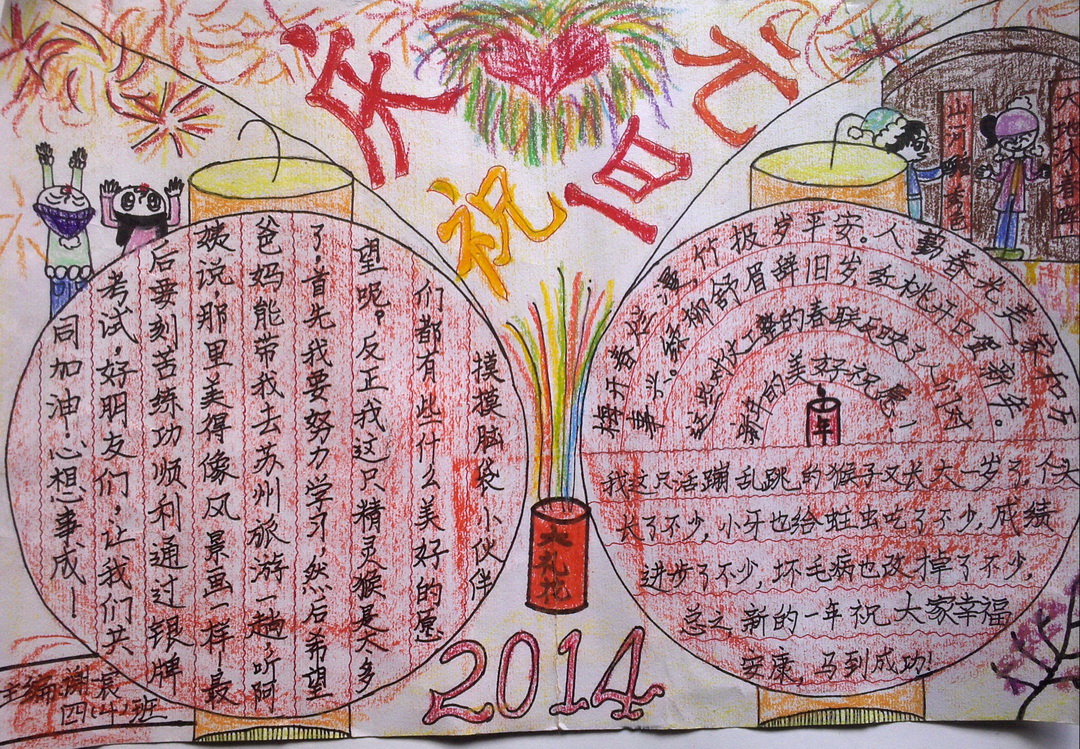 庆祝元旦
摸摸脑袋小伙伴
们都有些什么美好的愿
望呢?反正我这只精灵猴是太多
了,首先我要努力学习,然后希望
爸妈能带我去苏州旅游一趟,听阿
姨说,那里美得像风景画一样,最
后要刻苦练功顺利通过银牌
考试,好朋友们,让我们共
同加油,心想事成!
大礼花
2014
大地沐春晖
山河春色
梅开春,竹报岁平安。人勤春光美,家和万
事兴。绿柳舒眉辞旧岁,红桃开口贺新年。
这些工整的春联反映了人们对
新年的美好祝愿!
年
我这只活蹦乱跳的猴子又长大一岁了,个头
长了不少,小牙也给蛀虫吃了不少,成绩
进步了不少,坏毛病也改掉了不少,
总之,新的一年祝大家幸福
安康,马到成功!
主编
四(4)班